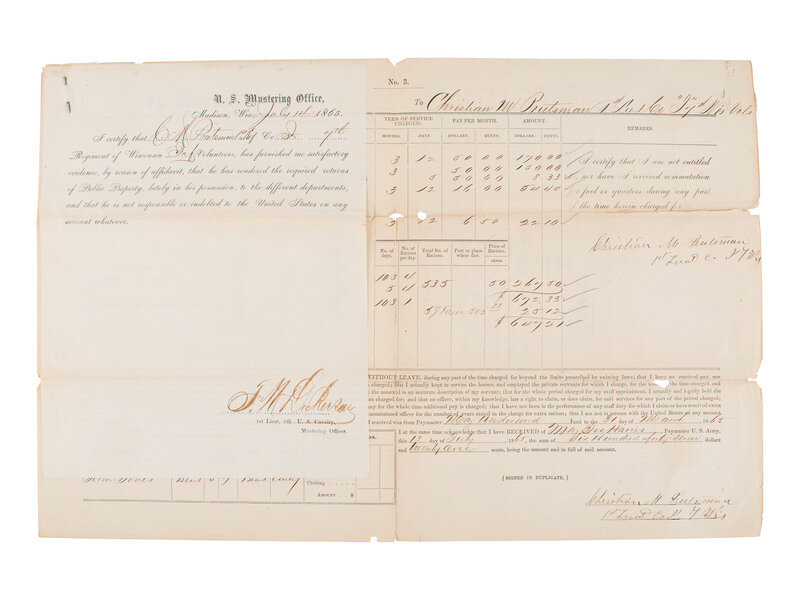 U. S. Mustering Office,
Madison, Wis. July 14th 1865.
I certify that C M Prutsman Co. 7th
Regiment of Wisconsin Inf Volunteers, has furnished me satisfactory
evidence, by reason of affidavit, that he has rendered the required returns
of Public Property, lately in his possession, to the different departments,
and that he is not responsible or indebted to the United States on any
account whatever.
1st Lieut. 5th U. S. Cavalry,
Mustering Officer.
No. 3.
To Christian M Prutsman 1st Lieut Co "I" 7th Wis Vols
TERM OF SERVICE CHARGED. PAY PER MONTH. AMOUNT. REMARKS
MONTHS. DAYS. DOLLARS. CENTS. DOLLARS. CENTS.
3 12 50 00 170 00
3 50 00 150 00
5 50 00 8 33
3 12 16 00 54 40
3 12 6 50 22 10
I certify that I am not entitled
nor have I received commutation
fuel or quarters during any part
the time herein charged for.
Christian M Prutsman
1st Lieut Co I 7 Wis
No. of days. No. of Rations per day. Total No. of Rations. Post or place where due. Price of Rations
CENTS.
103 4
5 4 535 50 267 50
103 1 $ 672 33
25 12
$ 647 21
WITHOUT LEAVE, during any part of the time charged for beyond the limits prescribed by existing laws; that I have not received pay, nor
charged; that I actually kept in service the horses, and employed the private servants for which I charge, for the whole of the time charged, and
the annexed is an accurate description of my servant; that for the whole period charged for my staff appointment, I actually and legally held the
charged for; and that no officer, within my knowledge, has a right to claim, or does claim, for said services for any part of the period charged;
for the whole time additional pay is charged; that I have not been in the performance of any staff duty for which I claim or have received extra
commissioned officer for the number of years stated in the charge for extra rations; that I am not in arrears with the United States on any account
received was from Paymaster Maj and to the 31 day of March 1865
I at the same time acknowledge that I have RECEIVED of Maj Jos Harris, Paymaster U. S. Army,
this 17 day of July, 1865, the sum of Six Hundred forty seven dollars
and twenty one cents, being the amount and in full of said account.
(SIGNED IN DUPLICATE.)
Christian M Prutsman
1st Lieut Co I 7 Wis
Clothing
AMOUNT . . $